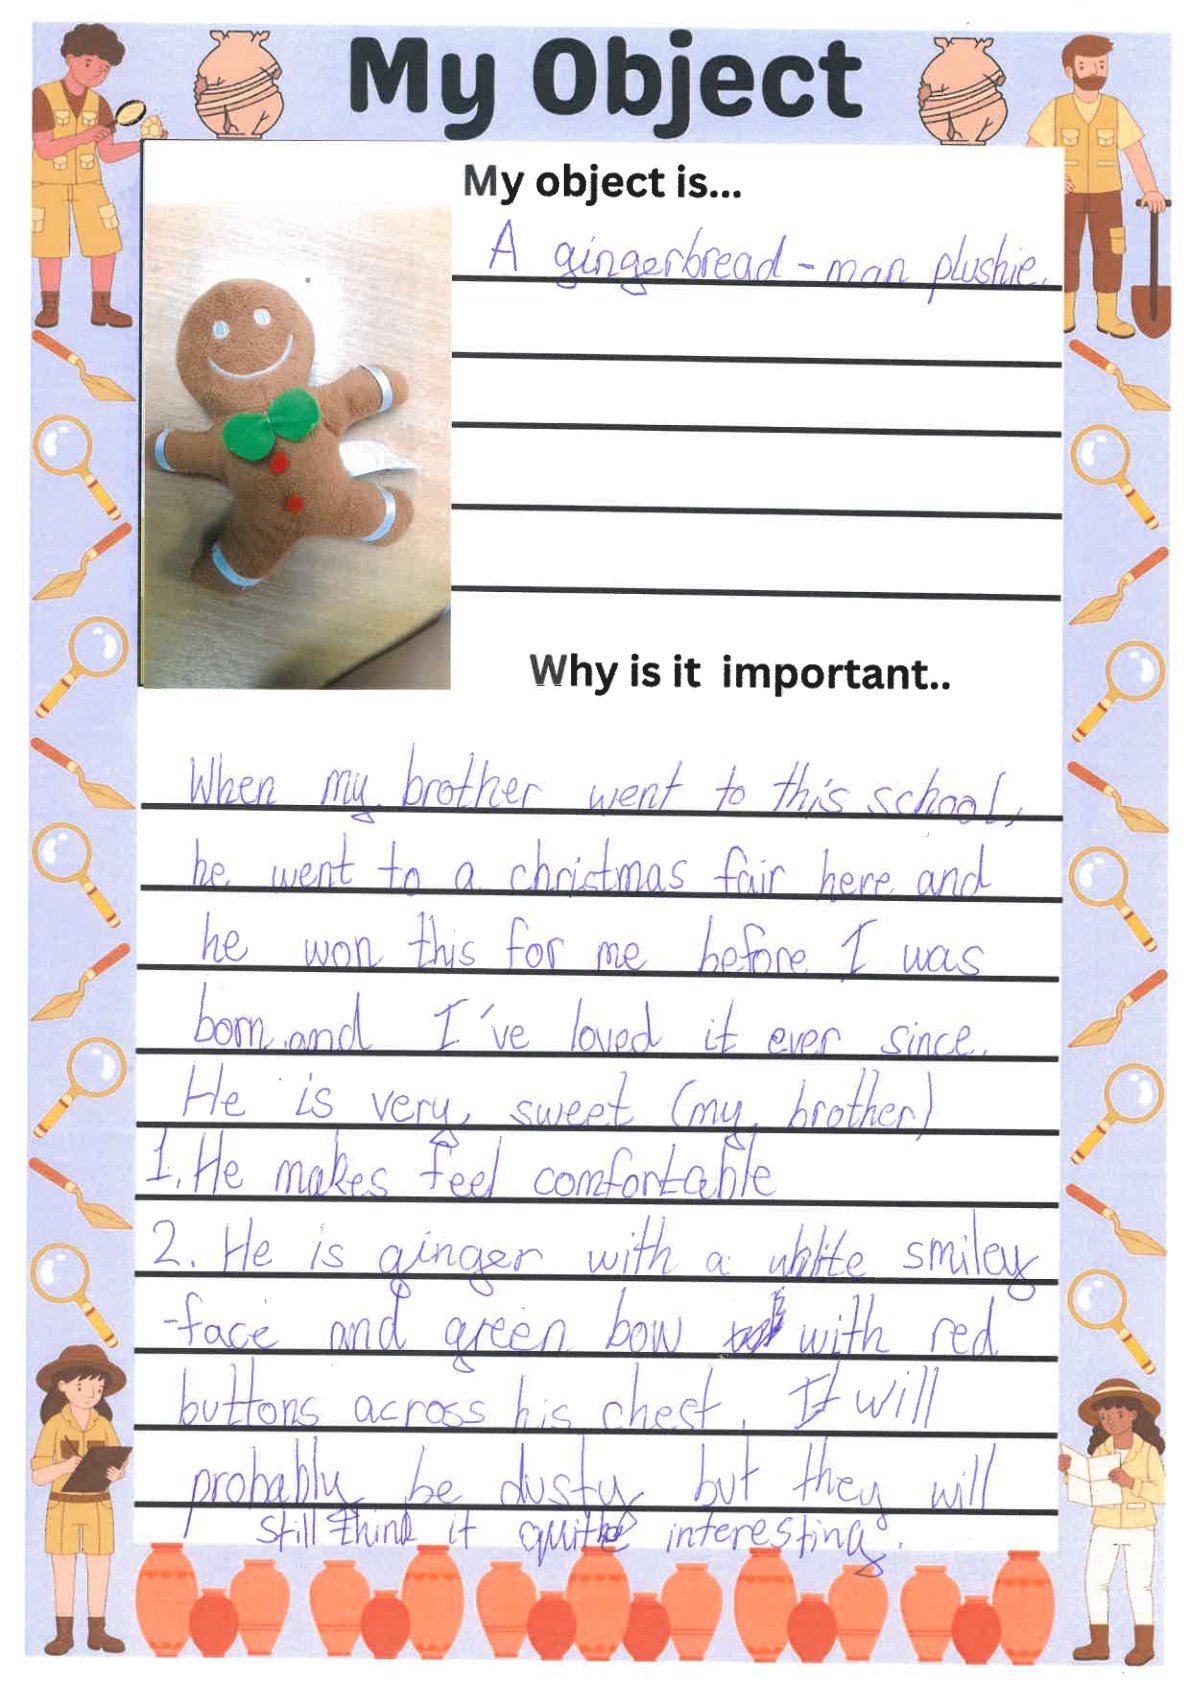 My Object
My object is...
A gingerbread-man plushie.
Why is it important..
When my brother went to this school,
he went to a christmas fair here and
he won this for me before I was
born and I've loved it ever since.
He is very sweet (my brother)
1. He makes feel comfortable
2. He is ginger with a white smiley
-face and green bow with red
buttons across his chest. It will
probably be dusty but they will
still think it quite interesting.